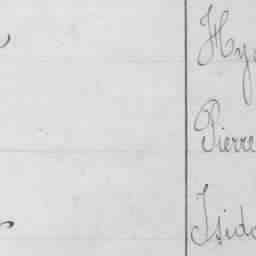 Hya
Pierre
Isido